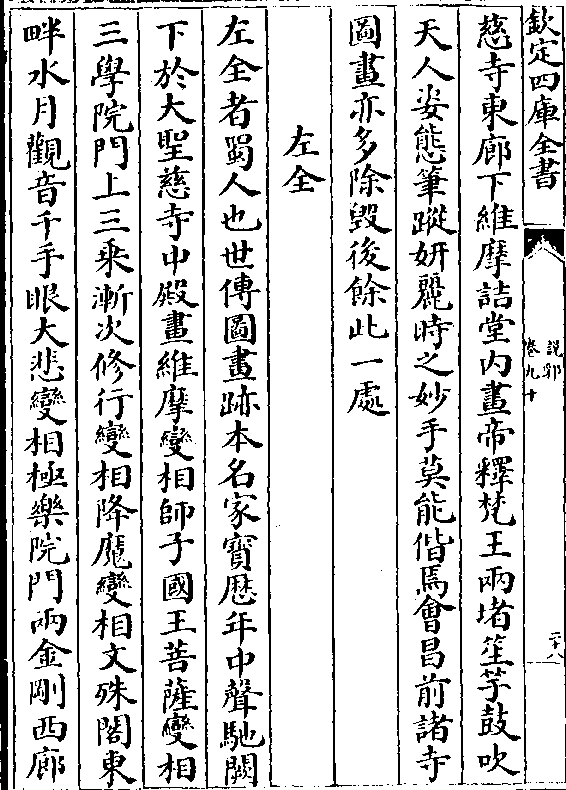 欽定四庫全書
說郛
卷九十
二十八
慈寺東廊下維摩詰堂内畫帝釋梵王兩堵笙竽鼓吹
天人姿態筆蹤妍麗時之妙手莫能偕焉會昌前諸寺
圖畫亦多除毁後餘此一處
左全
左全者蜀人也世傳圖畫跡本名家寳厯年中聲馳闕
下於大聖慈寺中殿畫維摩變相師子國王菩薩變相
三學院門上三乘漸次修行變相降魔變相文殊閣東
畔水月觀音千手眼大悲變相極樂院門兩金剛西廊